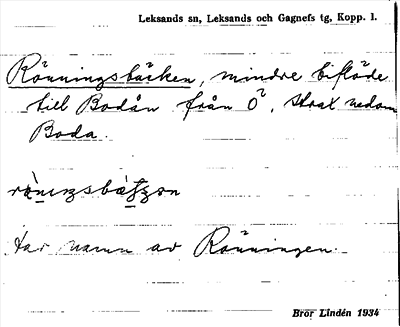 Leksands sn, Leksands och Gagnefs tg, Kopp. l.
Rönningsbäcken, mindre biflöde
till Bodån från Ö, strax nedom
Boda.
har namn av Rönningen.
Bror Lindén 1934